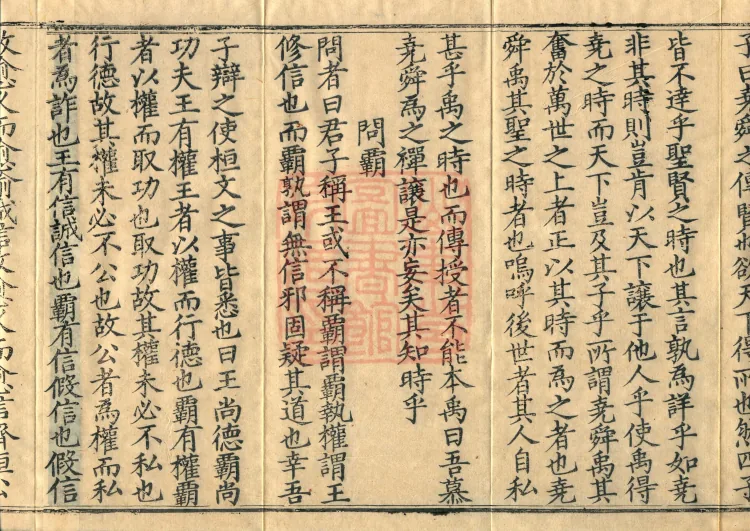 皆不達乎聖賢之時也其言孰為詳乎如堯
非其時則豈肯以天下讓于他人乎使禹得
堯之時而天下豈及其子乎所謂堯舜禹其
奮於萬世之上者正以其時而為之者也堯
舜禹其聖之時者也嗚呼後世者其人自私
甚乎禹之時也而傳授者不能本禹曰吾慕
堯舜為之禪讓是亦妄矣其知時乎
問霸
問者曰君子稱王或不稱霸謂霸執權謂王
修信也而霸孰謂無信邪固疑其道也幸吾
子辯之使桓文之事皆悉也曰王尚德霸尚
功夫王有權王者以權而行德也霸有權霸
者以權而取功也取功故其權未必不私也
行德故其權未必不公也故公者為權而私
者為詐也王有信誠信也霸有信假信也假信